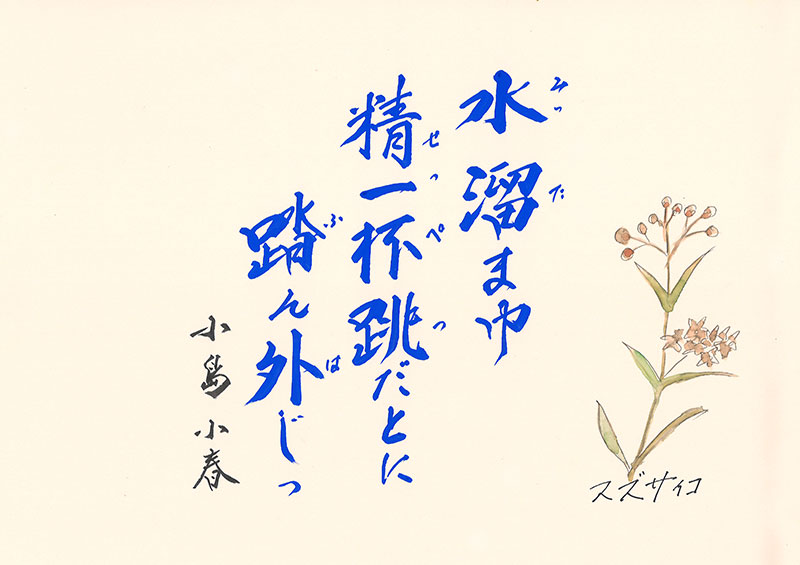 水溜まゆ
みっ た
精一杯跳だとに
せっ ぺ つ
踏ん外じっ
ふ は
小島 小春
スズサイコ